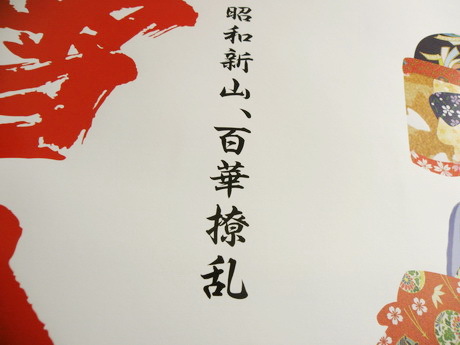 昭和新山、百華撩乱